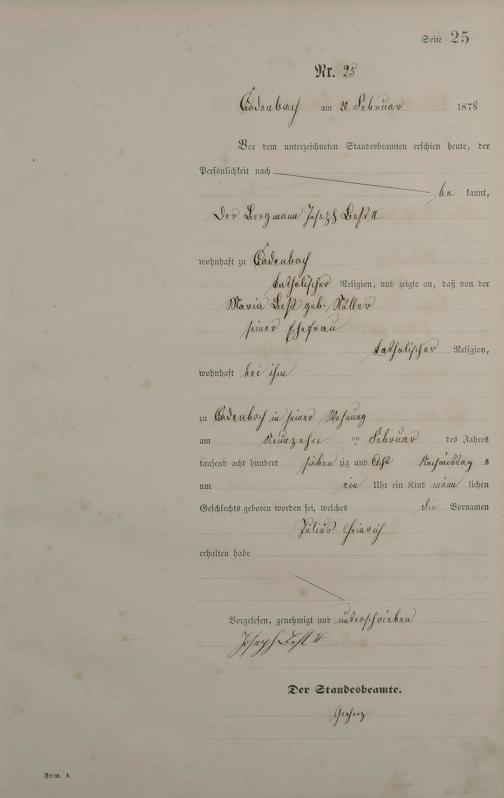 Seite 25
Nr. 25
Cadenbach am 20. Februar 1878
Vor dem unterzeichneten Standesbeamten erschien heute, der
Persönlichkeit nach
be kannt,
der Bergmann Joseph Best II
wohnhaft zu Cadenbach
katholischer Religion, und zeigte an, daß von der
Maria Best geb. Müller
seiner Ehefrau
katholischer Religion,
wohnhaft bei ihm
zu Cadenbach in seiner Wohnung
am Neunzehn ten Februar des Jahres
tausend acht hundert sieben zig und Acht Nachmittag s
um ein Uhr ein Kind männ lichen
Geschlechts geboren worden sei, welches die Vornamen
Julius Heinrich
erhalten habe
Vorgelesen, genehmigt und unterschrieben
Joseph Best II
Der Standesbeamte.
Form. A.